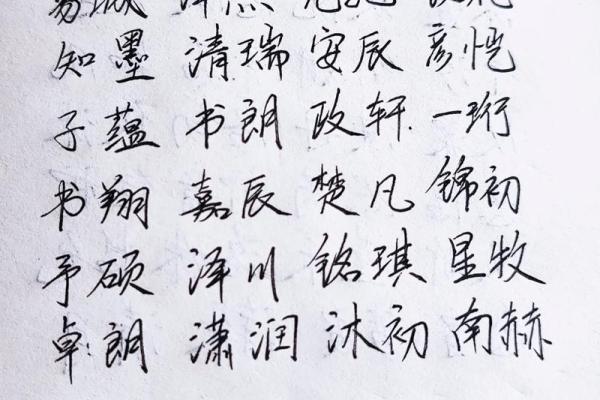 知墨 清瑞 安辰 彦恺
子蕴 书朗 政轩 一珩
书翔 嘉辰 楚凡 锦初
予硕 泽川 铭琪 星牧
卓朗 潇润 沐初 南赫